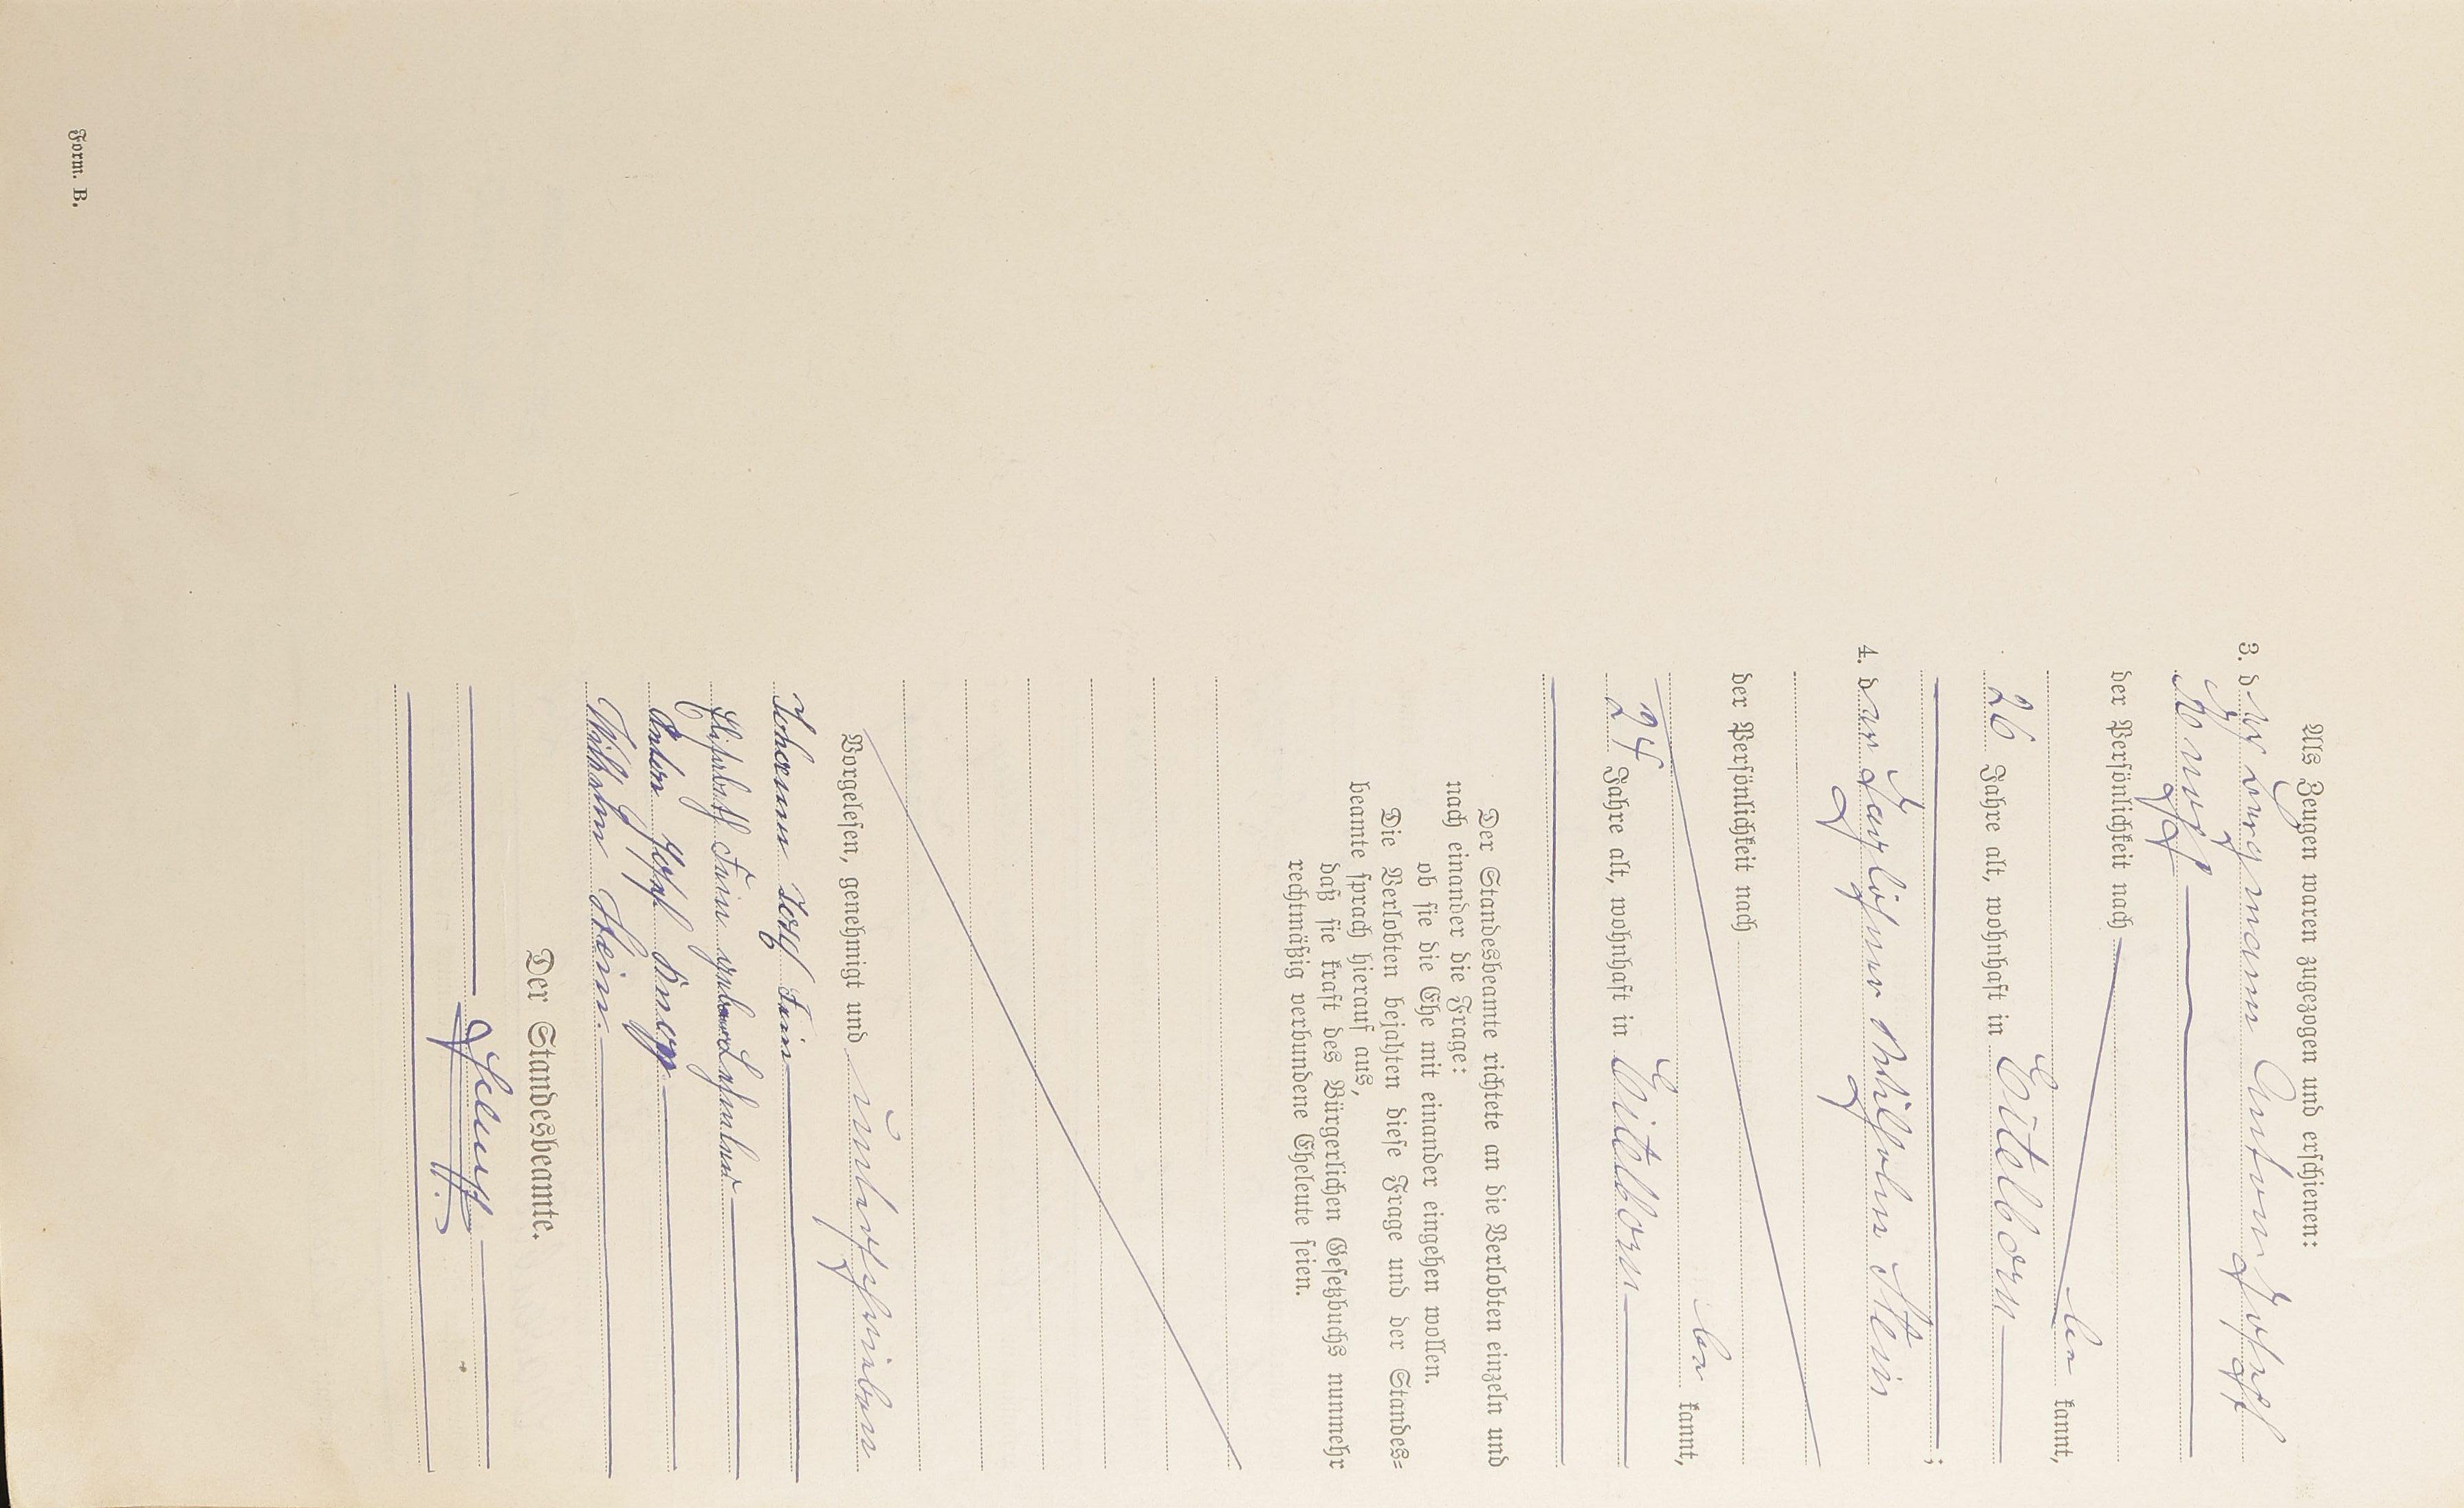 Als Zeugen waren zugezogen und erschienen:
3. der Bergmann Anton Joseph
der Persönlichkeit nach
be kannt,
26 Jahre alt, wohnhaft in Eitelborn
;
4. der Taglöhner Wilhelm Stein
der Persönlichkeit nach
be kannt,
24 Jahre alt, wohnhaft in Eitelborn
Der Standesbeamte richtete an die Verlobten einzeln und
nach einander die Frage:
ob sie die Ehe mit einander eingehen wollen.
Die Verlobten bejahten diese Frage und der Standes=
beamte sprach hierauf aus,
daß sie kraft des Bürgerlichen Gesetzbuchs nunmehr
rechtmäßig verbundene Eheleute seien.
Vorgelesen, genehmigt und unterschrieben
Johann Josef
Elisabeth geborene
Anton Josef
Wilhelm Stein.
Der Standesbeamte.
Form. B.